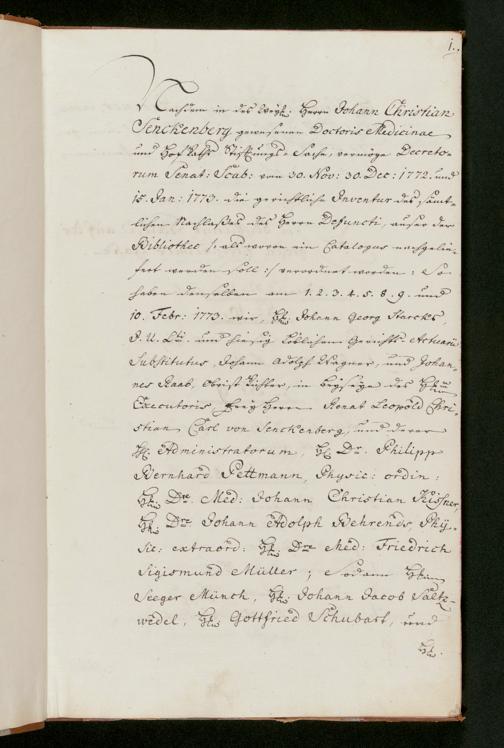 1.
Nachdem in des Weyl: Herrn Johann Christian
Senckenberg gewesenen Doctoris Medicinae
und HofRaths Stiftungs-Sache, vermöge Decreto-
rum Senat: Scab: vom 30. Nov: 30. Dec: 1772. und
15. Jan: 1773. die gerichtliche Inventur des sämt-
lichen Nachlaßes des Herrn Defuncti, auser der
Bibliothec /: als woron ein Catalogus nachgelie-
fert werden soll :/ verordnet worden; So
haben denselben am 1. 2. 3. 4. 5. 8. 9. und
10. Febr: 1773. wir, H: Johann Georg Starcks,
J. U. Ltus. und hiesig löblichen Gerichts Actuarii
Substitutus, Johann Adolph Wagner, und Johan-
nes Raab, Obrist Richter, in beyseyn des
Executoris Frey Herrn Renat Leopold Chri-
stian Carl von Senckenberg, und derer
Administratorum, H: Dr. Philipp
Bernhard Pettmann, Physic: ordin:
H: Dr. Med: Johann Christian Kißner,
H: Dr. Johann Adolph Behrends, Phy-
sic: extraord: H: Dr. Med: Friedrich
Sigismund Müller; Sodann
Seeger Münch, H: Johann Jacob Saltz-
wedel, H: Gottfried Schubart, und
H: